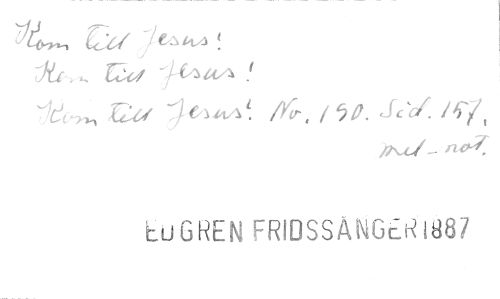 Kom till Jesus!
Kom till Jesus!
Kom till Jesus! No. 190. Sid. 157.
mel-not.
EDGREN FRIDSSÅNGER 1887